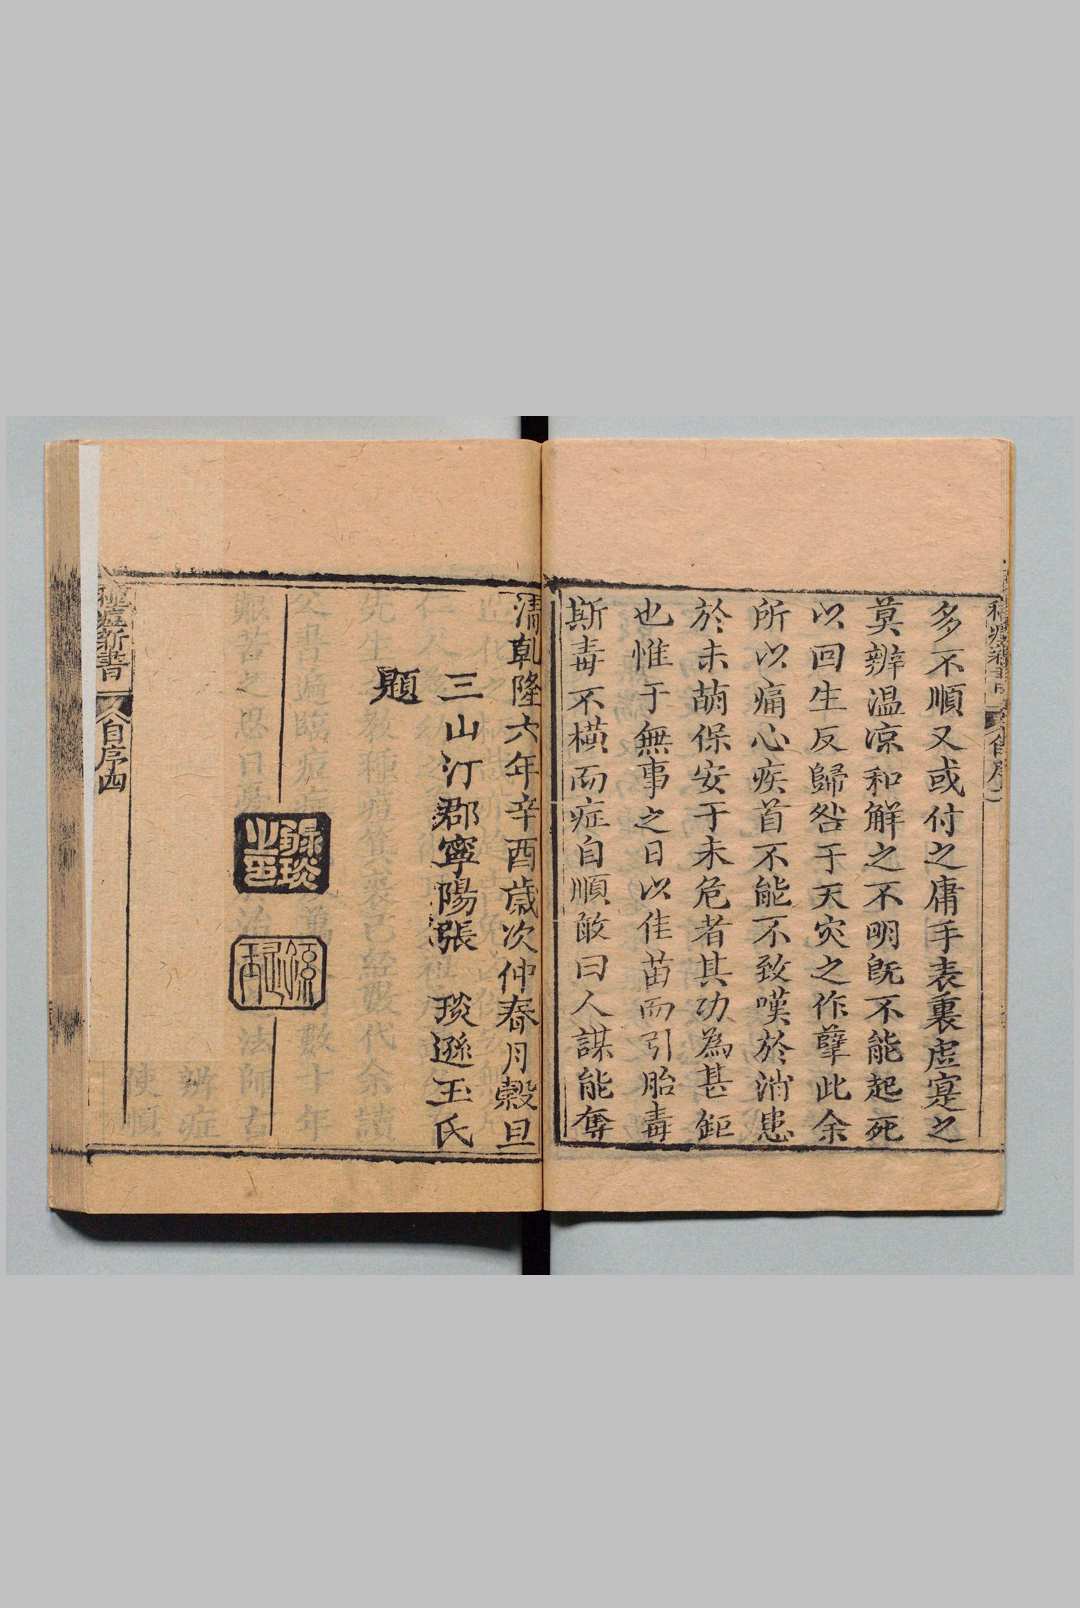 多不順又或付之庸手表裏虛寔之
莫辨温凉和解之不明旣不能起死
以回生反歸咎于天灾之作孽此余
所以痛心疾首不能不致嘆於消患
於未萌保安于未危者其功為甚鉅
也惟于無事之日以佳苗而引胎毒
斯毒不橫而症自順敢曰人謀能奪
清乾隆六年辛酉歲次仲春月穀旦
三山汀郡寧陽張 琰遜玉氏
題
張琰之印
遜玉
種痘新書
自序四